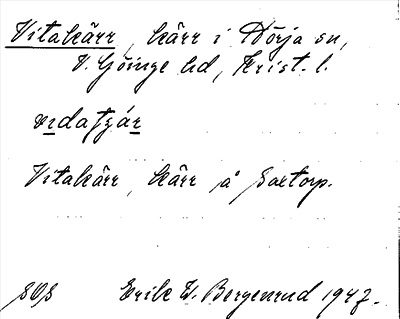 Vitakärr, kärr i Dörja sn,
V. Göinge hd, Krist. l.
vɪdatɟár
Vitakärr, kärr å Saxtorp.
SOS Erik W. Bergenrud 1947.